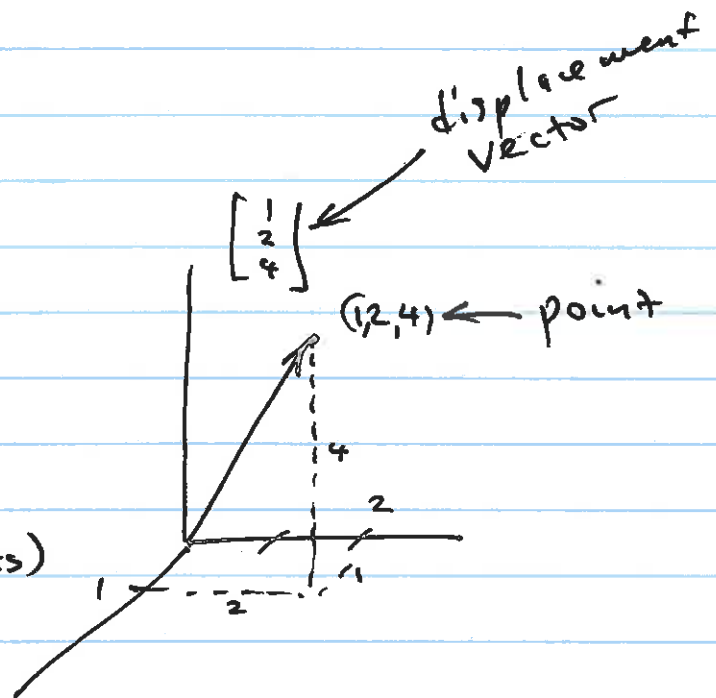 displacement
vector
[1
2
4]
(1,2,4) ← point
4
2
s)
1
2
1